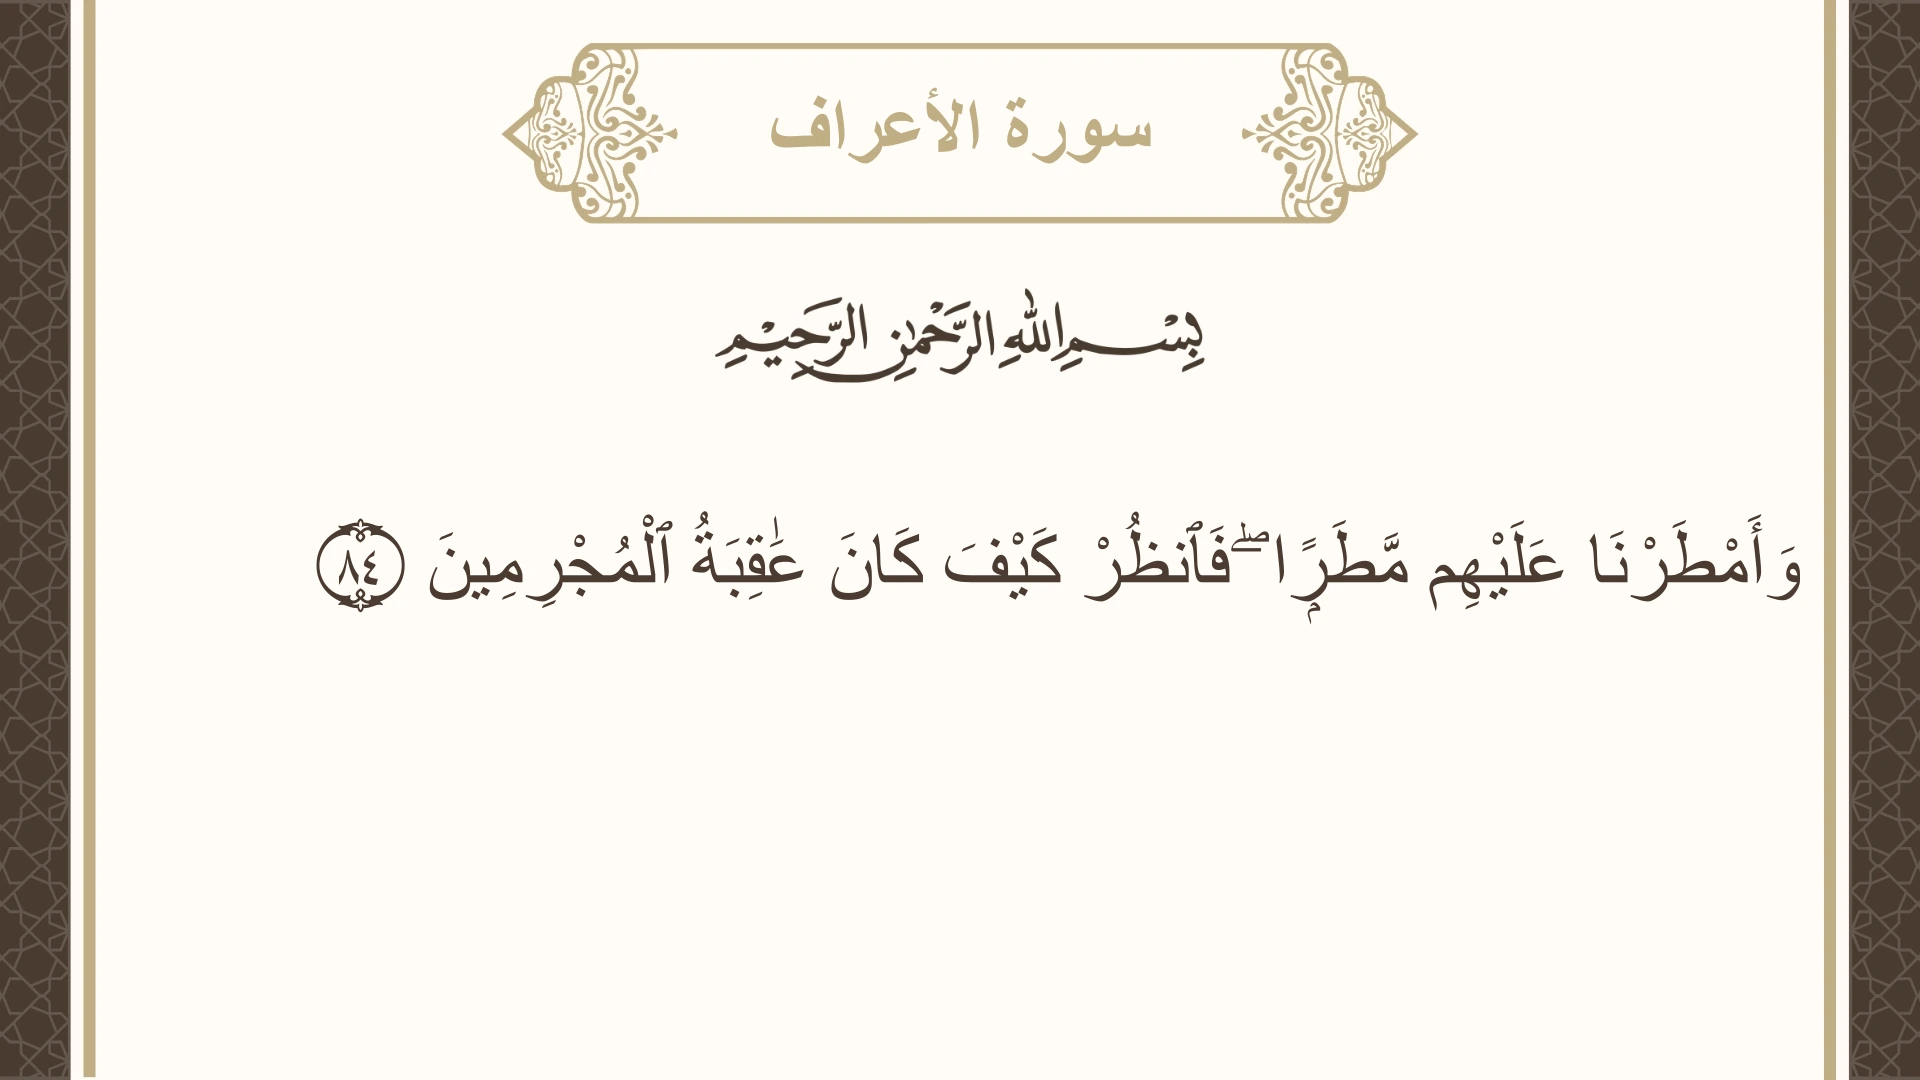 سورة الأعراف
بِسْمِ اللهِ الرَّحْمٰنِ الرَّحِيْمِ
وَأَمْطَرْنَا عَلَيْهِم مَّطَرًۭا ۖ فَٱنظُرْ كَيْفَ كَانَ عَـٰقِبَةُ ٱلْمُجْرِمِينَ ٨٤